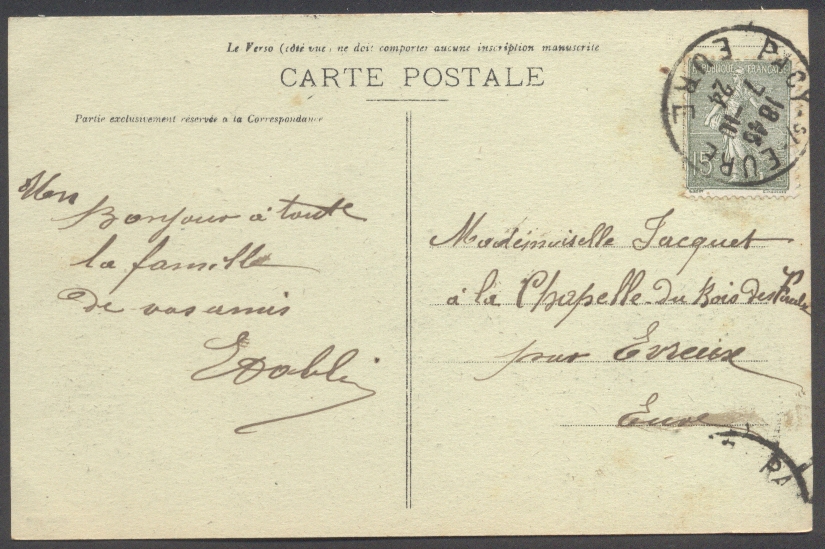 Le Verso (côté vue) ne doit comporter aucune inscription manuscrite
CARTE POSTALE
Partie exclusivement réservée à la Correspondance
RÉPUBLIQUE FRANÇAISE
15
PACY-S-EURE
EURE
1845
7
24
Bonjour à toute
la famille
de vos amis
Mademoiselle Jacquet
à la Chapelle-du Bois des Faulx
par Evreux
Eure
RA